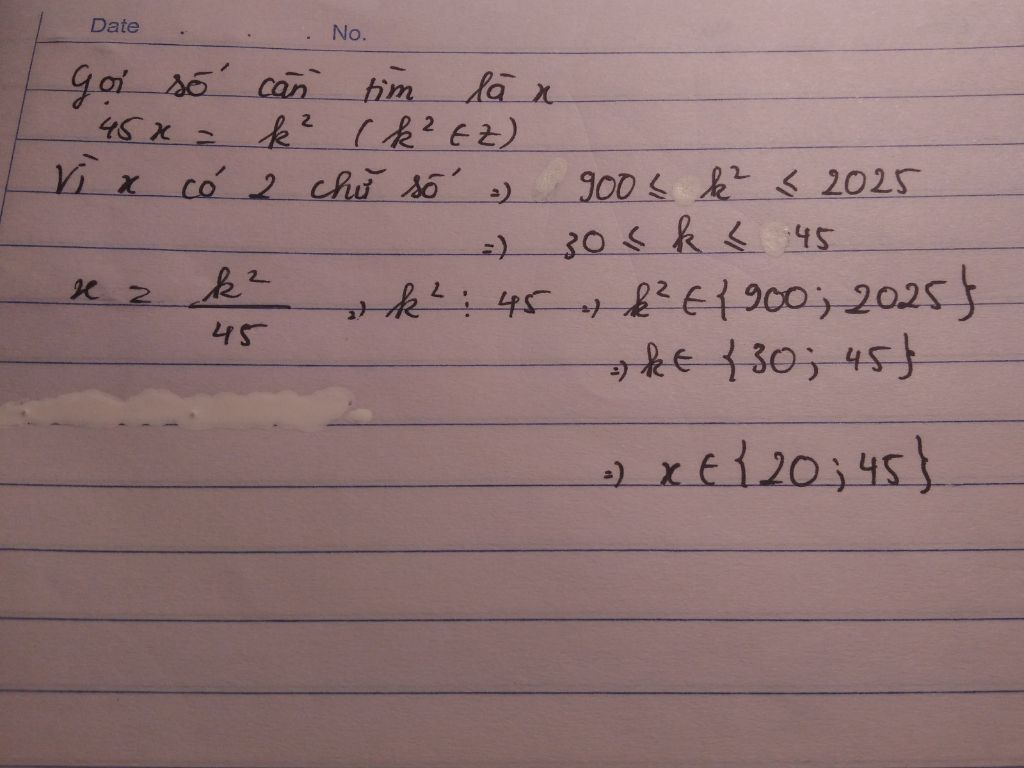 Date . . . No.
Gọi số cần tìm là x
45x = k² (k² ∈ Z)
Vì x có 2 chữ số => 900 ≤ k² ≤ 2025
=> 30 ≤ k ≤ 45
x = k²/45 => k² ⋮ 45 => k² ∈ {900; 2025}
=> k ∈ {30; 45}
=> x ∈ {20; 45}